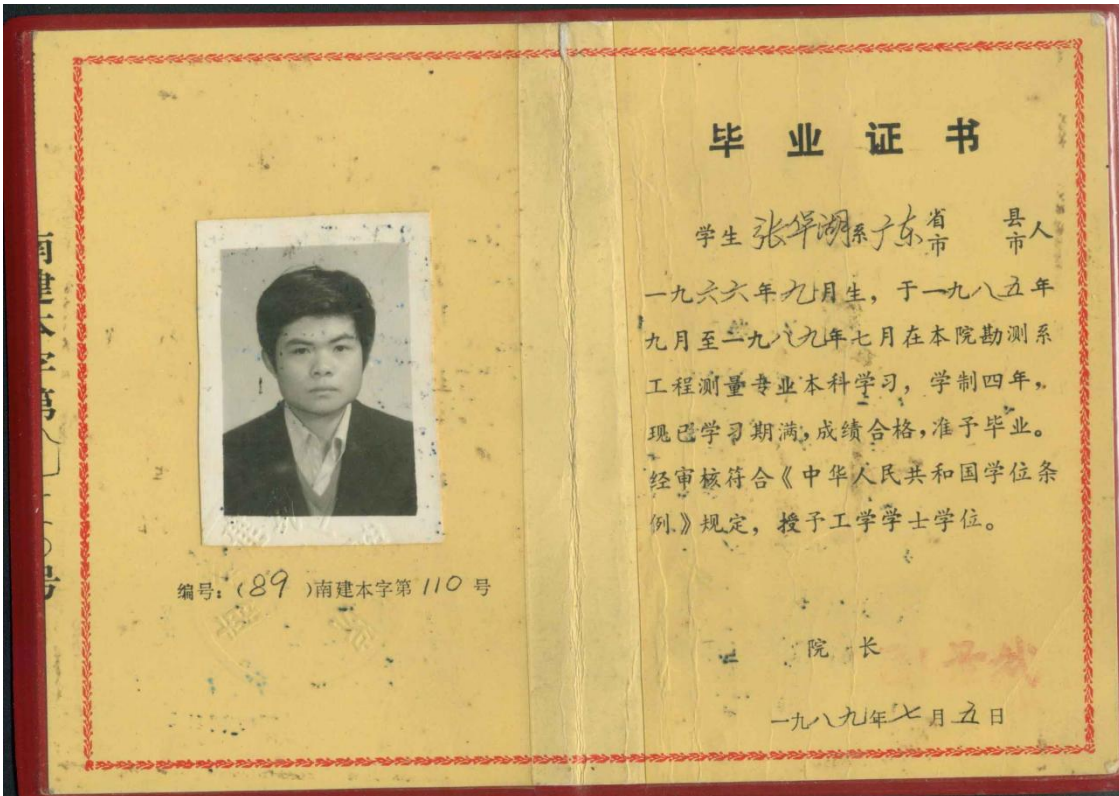 编号：(89)南建本字第110号
毕业证书
学生张华湖系广东省市 县市人
一九六六年九月生，于一九八五年
九月至一九八九年七月在本院勘测系
工程测量专业本科学习，学制四年，
现已学习期满，成绩合格，准予毕业。
经审核符合《中华人民共和国学位条
例》规定，授予工学学士学位。
院长
一九八九年七月五日